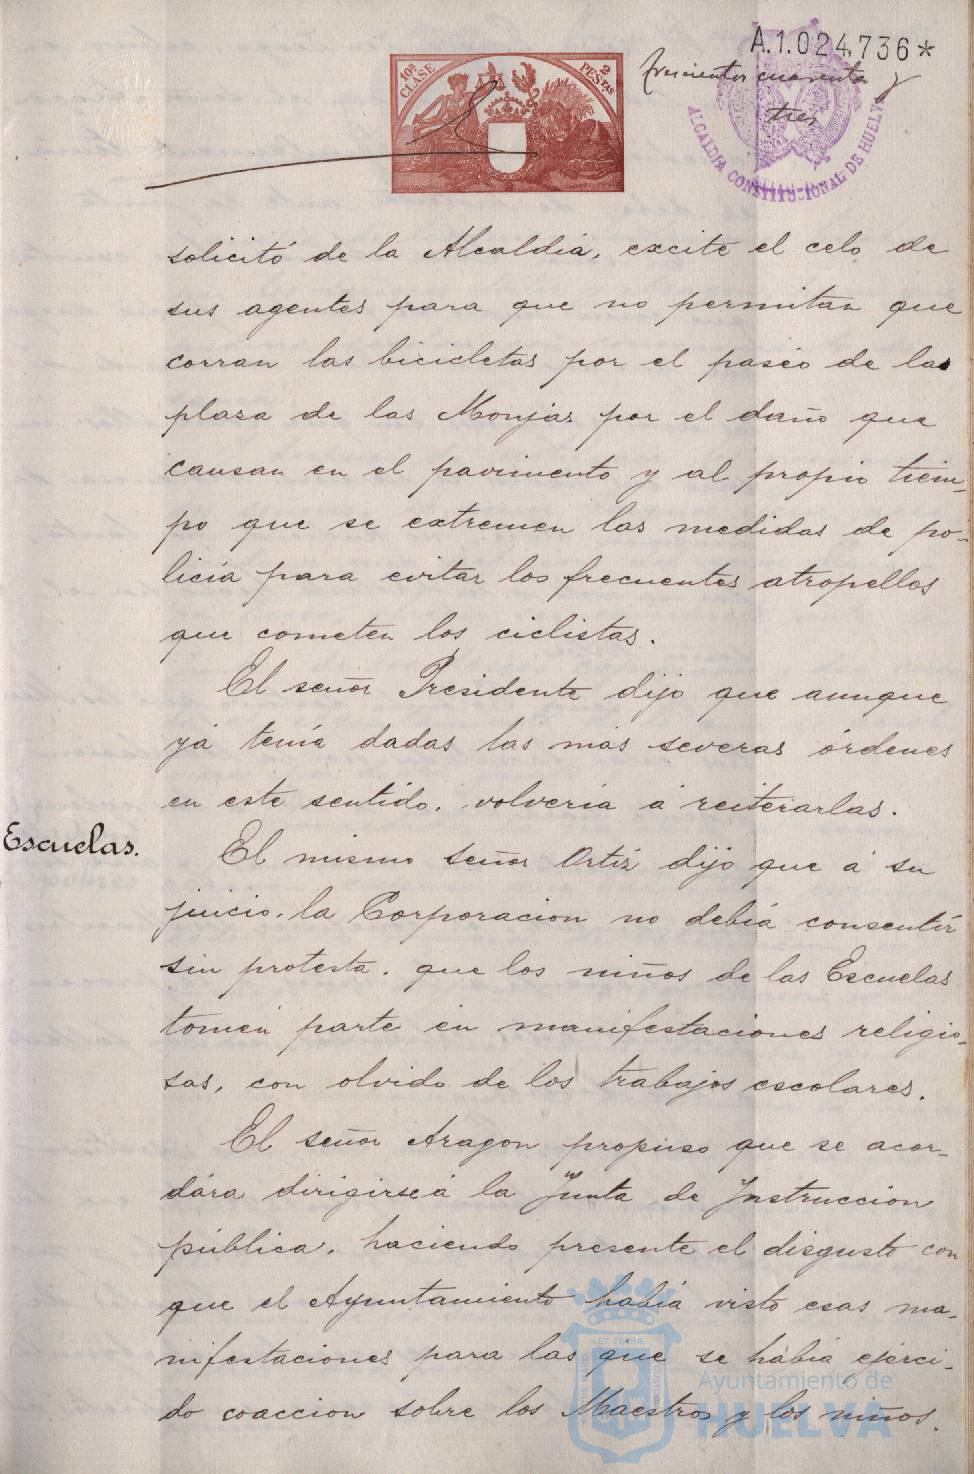 A.1.024.736*
10ª CLASE
2 PESTAS
trescientos cuarenta y
tres
ALCALDIA CONSTITUCIONAL DE HUELVA
solicitó de la Alcaldia, excite el celo de
sus agentes para que no permitan que
corran las bicicletas por el paseo de las
plaza de las Monjas por el daño que
causan en el pavimento y al propio tiem-
po que se extremen las medidas de po-
licía para evitar los frecuentes atropellos
que cometen los ciclistas.
El señor Presidente dijo que aunque
yá tenía dadas las más severas órdenes
en este sentido, volvería á reiterarlas.
Escuelas.
El mismo señor Ortiz dijo que á su
juicio, la Corporacion no debía consentir
sin protesta, que los niños de las Escuelas
tomen parte en manifestaciones religio-
sas, con olvido de los trabajos escolares.
El señor Aragon propuso que se acor-
dára dirigirse á la Junta de Instruccion
pública, haciendo presente el disgusto con
que el Ayuntamiento había visto esas ma-
nifestaciones para las que se había ejerci-
do coaccion sobre los Maestros y los niños.
Ayuntamiento de
HUELVA